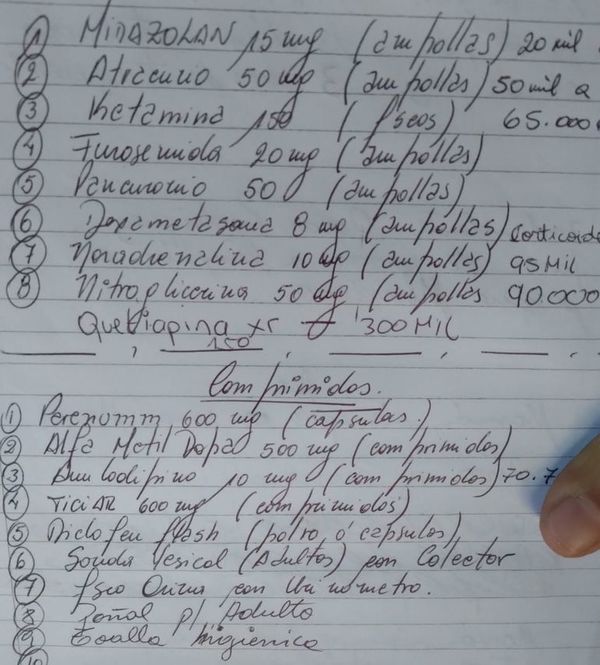 1 MIDAZOLAN 15 mg (ampollas) 20 mil
2 Atracurio 50 mg (ampollas) 50 mil a
3 Ketamina 150 (fscos) 65.000
4 Furosemida 20 mg (ampollas)
5 Pancuronio 50 (ampollas)
6 Dexametasona 8 mg (ampollas) Corticoide
7 Noradrenalina 10 mg (ampollas) 95 MIL
8 Nitroglicerina 50 mg (ampollas 90.000
Quetiapina xr 150 300 MIL
Comprimidos.
1 600 mg (capsulas.)
2 Alfa Metil Dopa 500 mg (comprimidos)
3 Amlodipino 10 mg (comprimidos) 70.7
4 600 mg (comprimidos)
5 Diclofen flash (polvo ó capsulas)
6 Sonda Vesical (Adultos) con Colector
7 fsco Orina con Urinometro.
8 Pañal p/ Adulto
9 Toalla higienica
10